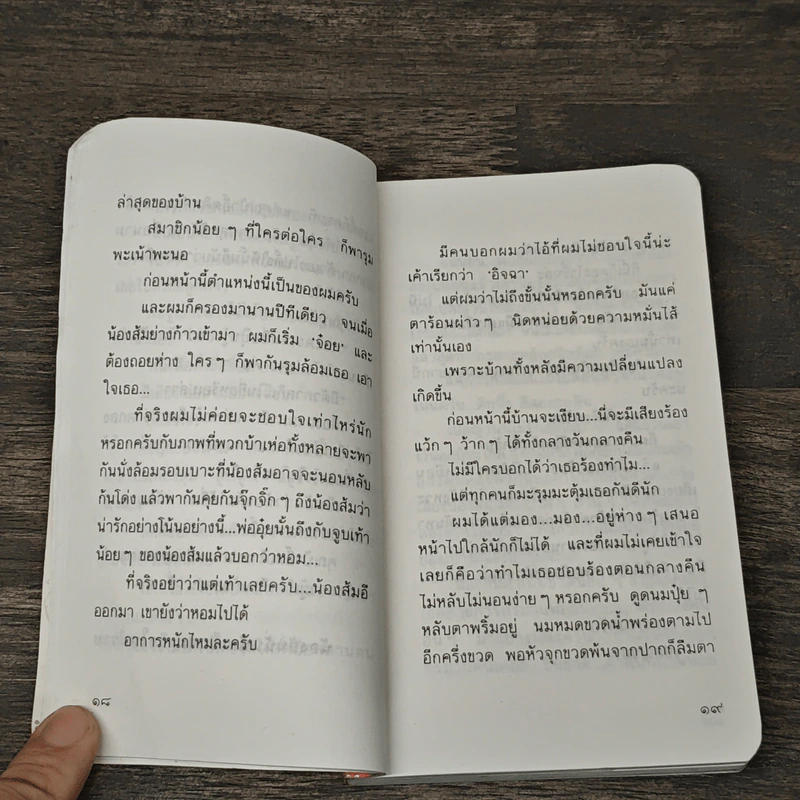 ล่าสุดของบ้าน
สมาชิกน้อย ๆ ที่ใครต่อใคร ก็พารุม
พะเน้าพะนอ
ก่อนหน้านี้ตำแหน่งนี้เป็นของผมครับ
และผมก็ครองมานานปีทีเดียว จนเมื่อ
น้องส้มย่างก้าวเข้ามา ผมก็เริ่ม 'จ๋อย' และ
ต้องถอยห่าง ใคร ๆ ก็พากันรุมล้อมเธอ เอา
ใจเธอ...
ที่จริงผมไม่ค่อยจะชอบใจเท่าไหร่นัก
หรอกครับกับภาพที่พวกบ้าเห่อทั้งหลายจะพา
กันนั่งล้อมรอบเบาะที่น้องส้มอาจจะนอนหลับ
ก้นโด่ง แล้วพากันคุยกันจุ๊กจิ๊ก ๆ ถึงน้องส้มว่า
น่ารักอย่างโน้นอย่างนี้...พ่ออุ๋ยนั้นถึงกับจูบเท้า
น้อย ๆ ของน้องส้มแล้วบอกว่าหอม...
ที่จริงอย่าว่าแต่เท้าเลยครับ...น้องส้มอึ
ออกมา เขายังว่าหอมไปได้
อาการหนักไหมละครับ
๑๘
มีคนบอกผมว่าไอ้ที่ผมไม่ชอบใจนี้น่ะ
เค้าเรียกว่า 'อิจฉา'
แต่ผมว่าไม่ถึงขั้นนั้นหรอกครับ มันแค่
ตาร้อนผ่าว ๆ นิดหน่อยด้วยความหมั่นไส้
เท่านั้นเอง
เพราะบ้านทั้งหลังมีความเปลี่ยนแปลง
เกิดขึ้น
ก่อนหน้านี้บ้านจะเงียบ...นี่จะมีเสียงร้อง
แว้ก ๆ ว้าก ๆ ได้ทั้งกลางวันกลางคืน
ไม่มีใครบอกได้ว่าเธอร้องทำไม...
แต่ทุกคนก็มะรุมมะตุ้มเธอกันดีนัก
ผมได้แต่มอง...มอง...อยู่ห่าง ๆ เสนอ
หน้าไปใกล้นักก็ไม่ได้ และที่ผมไม่เคยเข้าใจ
เลยก็คือว่าทำไมเธอชอบร้องตอนกลางคืน
ไม่หลับไม่นอนง่าย ๆ หรอกครับ ดูดนมปุ๋ย ๆ
หลับตาพริ้มอยู่ นมหมดขวดน้ำพร่องตามไป
อีกครึ่งขวด พอหัวจุกขวดพ้นจากปากก็ลืมตา
๑๙